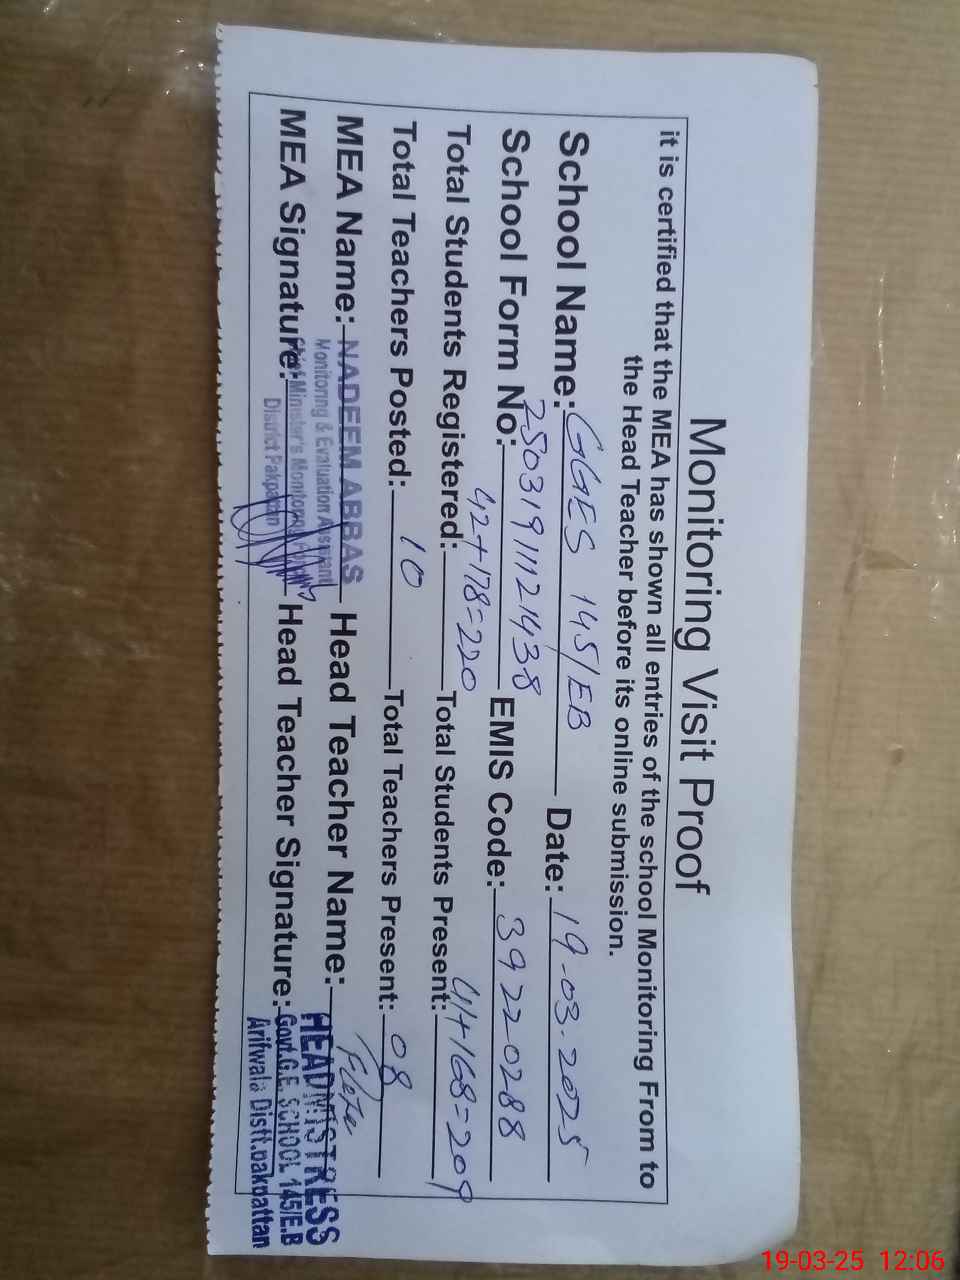 Monitoring Visit Proof
it is certified that the MEA has shown all entries of the school Monitoring From to
the Head Teacher before its online submission.
School Name: GGES 145/EB Date: 19-03-2025
School Form No: 25031911121438 EMIS Code: 39220288
Total Students Registered: 42+178=220 Total Students Present: 41+168=209
Total Teachers Posted: 10 Total Teachers Present: 08
MEA Name: NADEEM ABBAS Head Teacher Name:
Monitoring & Evaluation Assistant
MEA Signature: Head Teacher Signature:
Chief Minister's Monitoring
District Pakpattan
HEADMISTRESS
Govt.G.E. SCHOOL 145/E.B
Arifwala Distt.pakpattan
19-03-25 12:06